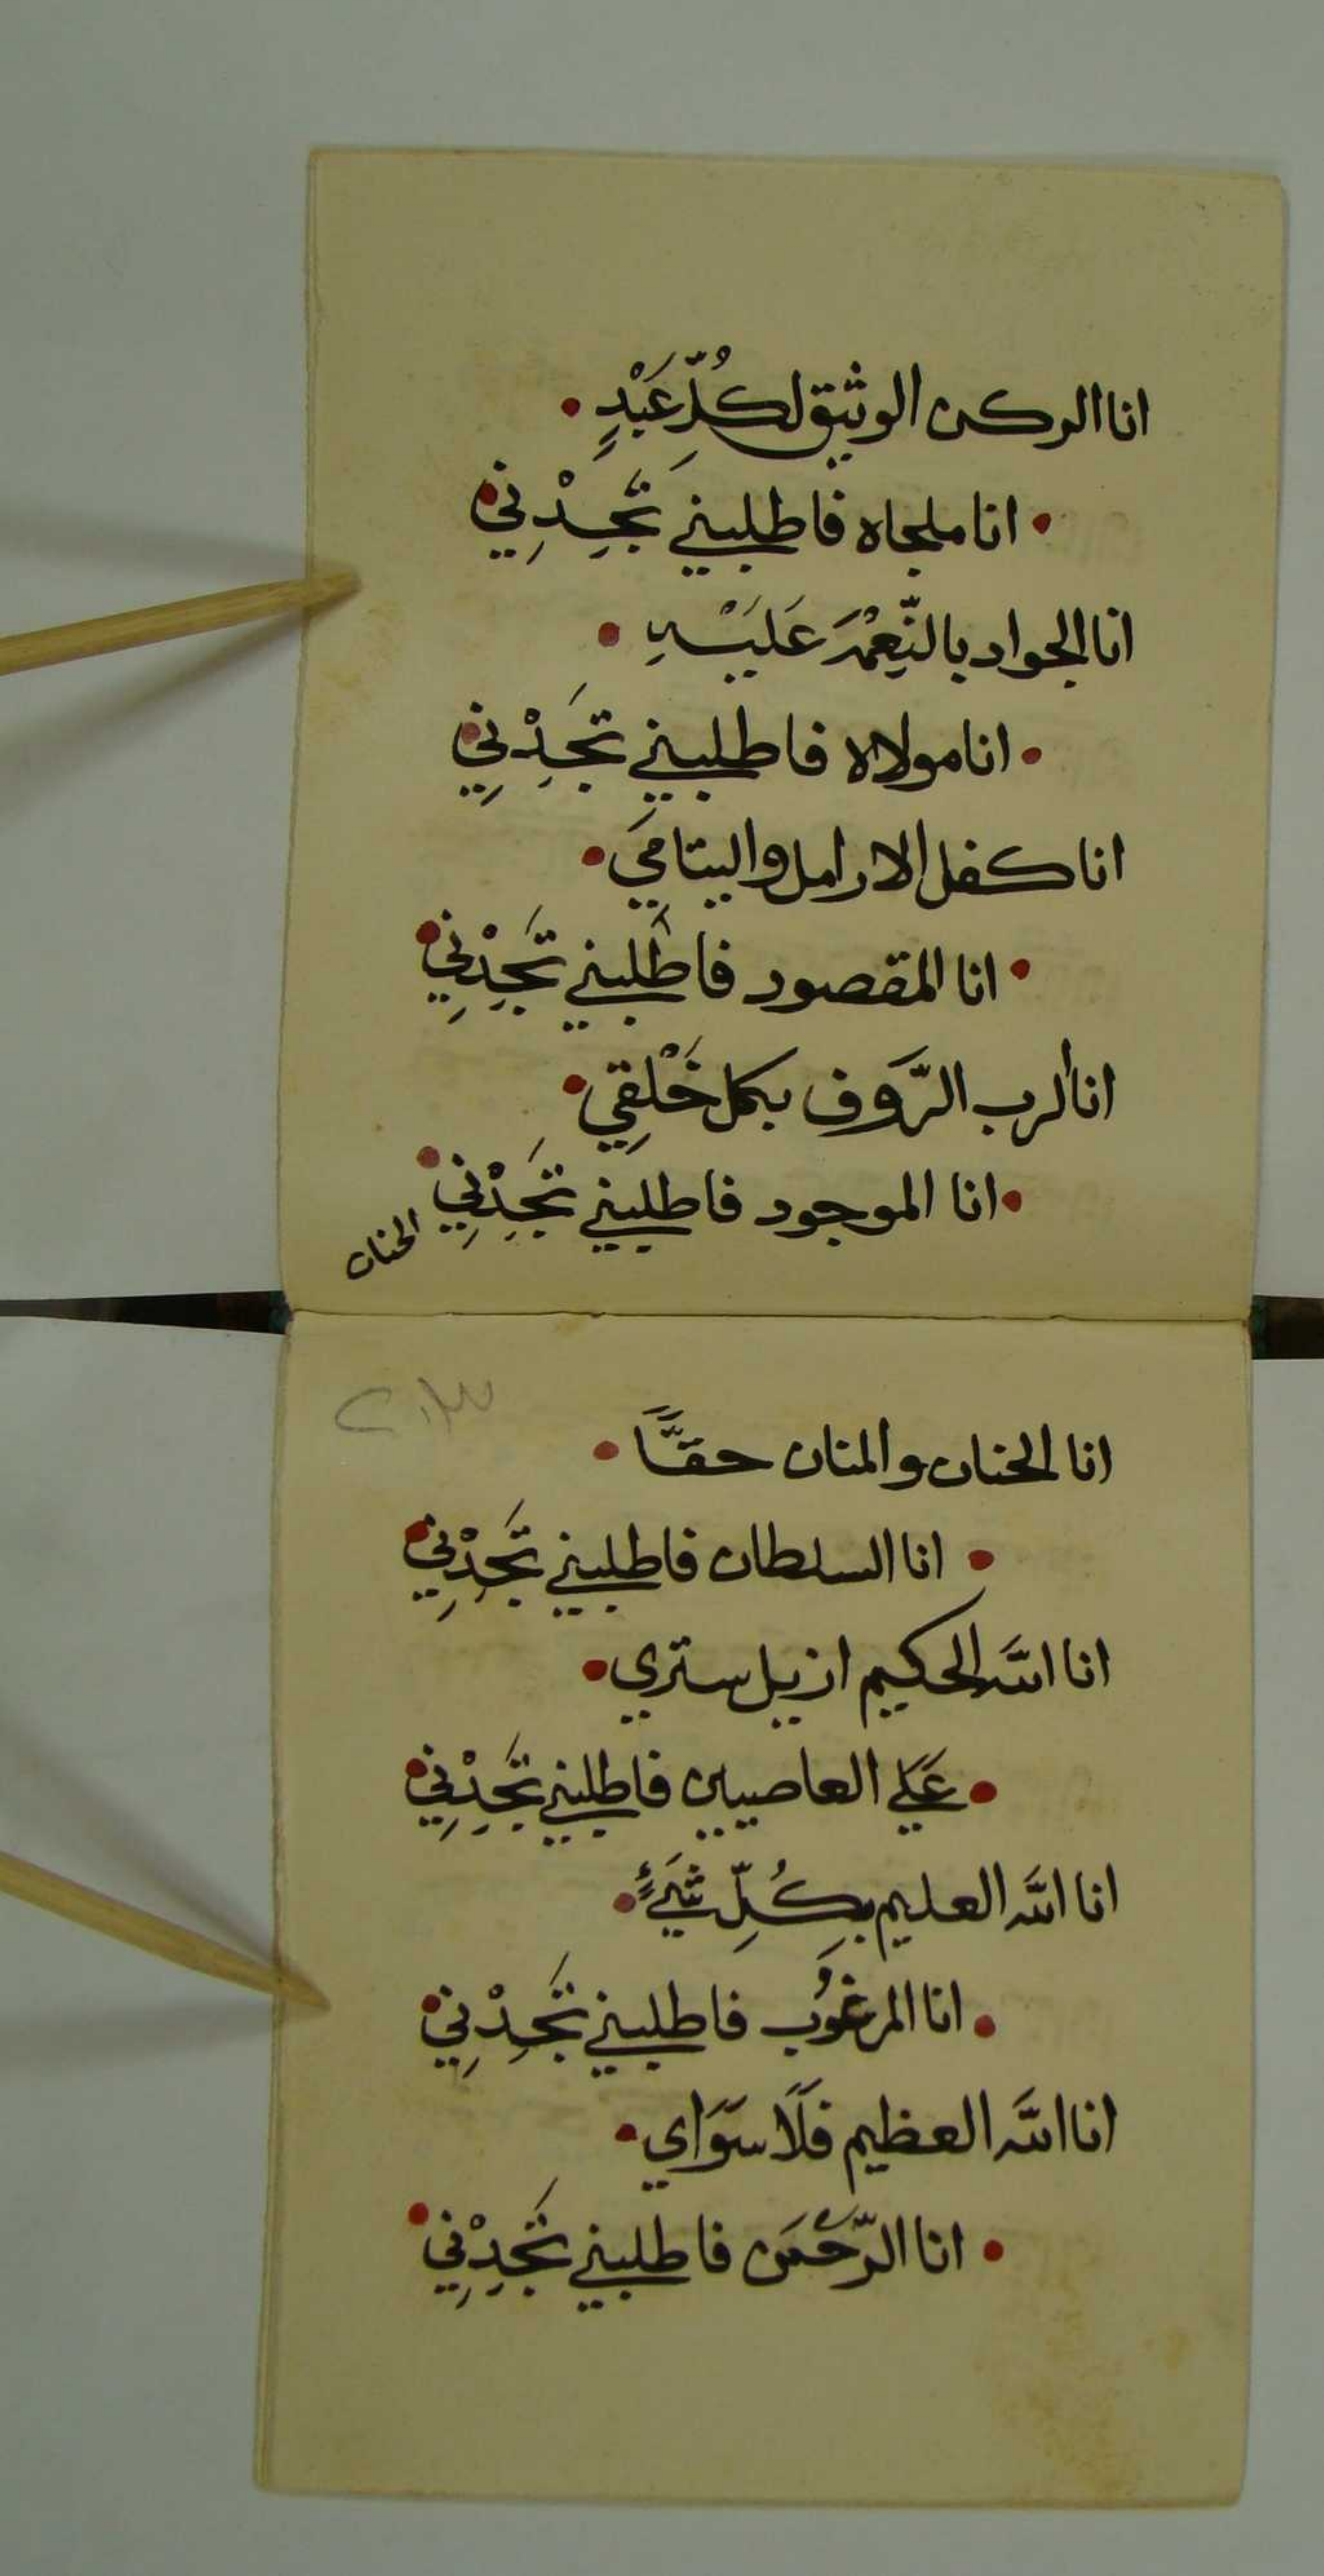 انا الركن الوثيق لكُلِّ عَبْدٍ
انا ملجاه فاطلبني تَجِدْنِي
انا الجواد بالنِّعَمْ عَلَيْهِ
انا مولاه فاطلبني تَجِدْنِي
انا كفل الارامل واليتامَي
انا المقصود فاطلبني تَجِدْنِي
انا الرب الرَّوَف بكل خَلْقِي
انا الموجود فاطلبني تَجِدْنِي
الحنان
٢٠٣
انا الحنان والمنان حقَّاً
انا السلطان فاطلبني تَجِدْنِي
انا اللَّه الحكيم ازيل ستري
عَلَي العاصيين فاطلبني تَجِدْنِي
انا اللَّه العليم بِكُلِّ شَيْءٍ
انا المرغُوب فاطلبني تَجِدْنِي
انا اللَّه العظيم فَلَا سَوَاي
انا الرَّحْمَن فاطلبني تَجِدْنِي